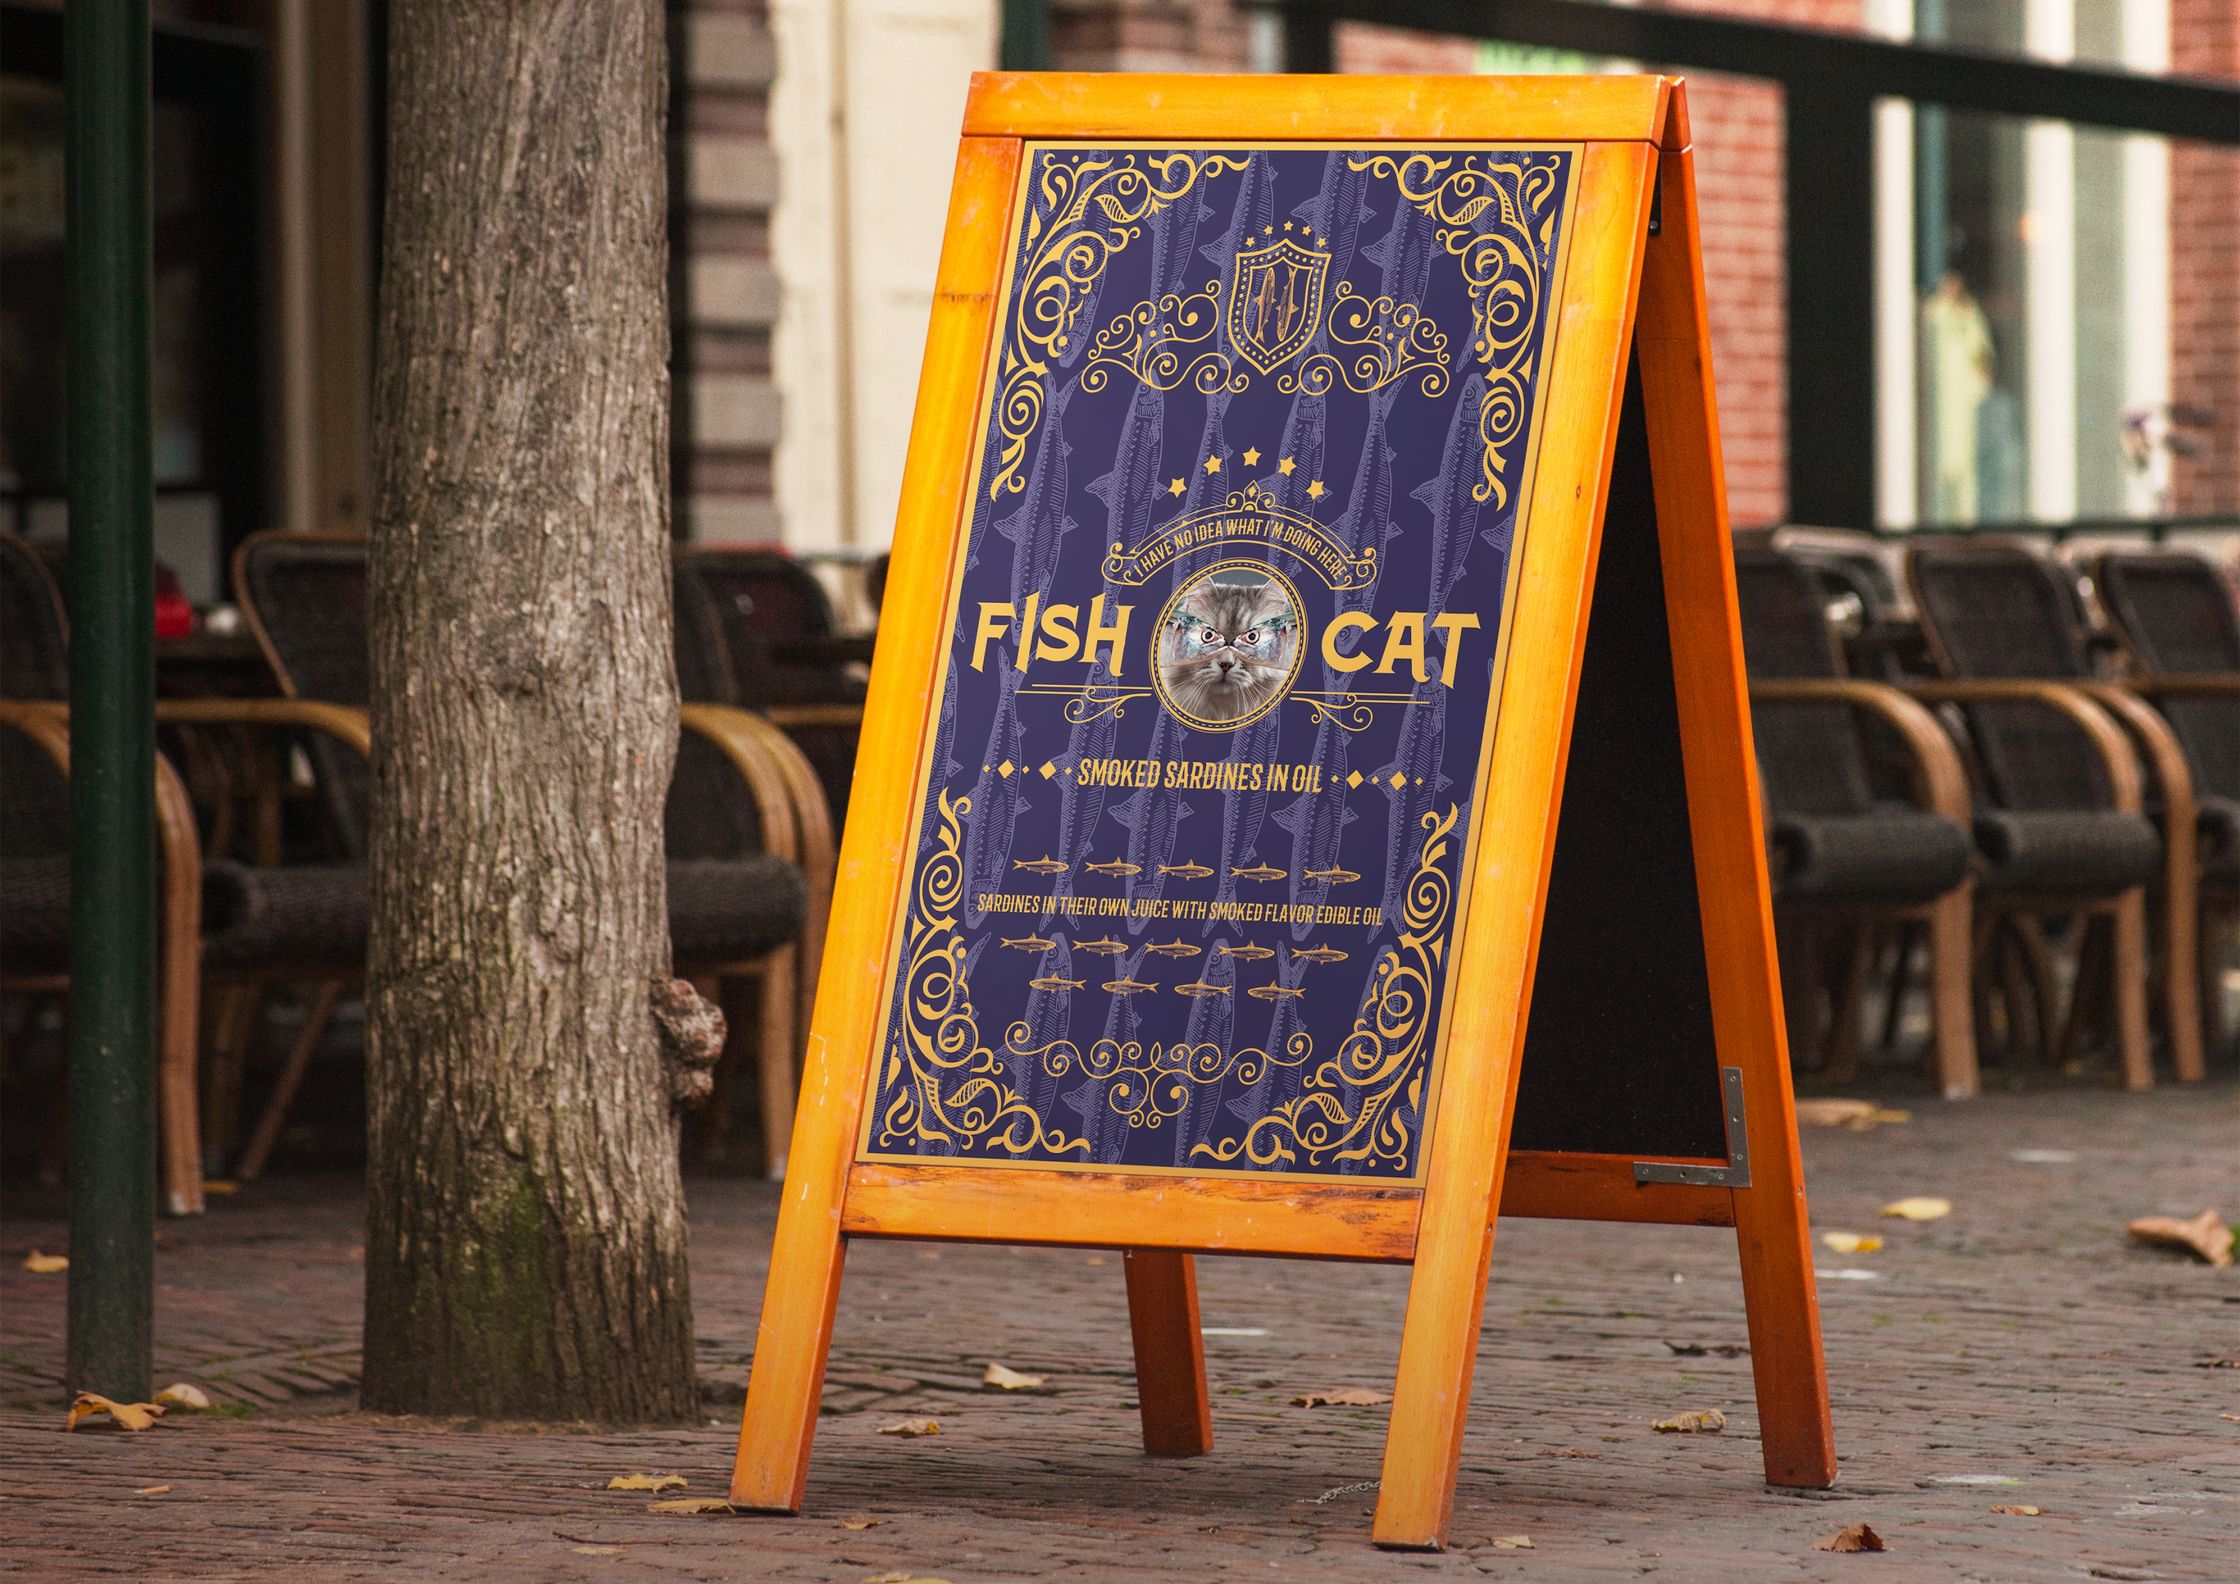 I HAVE NO IDEA WHAT I'M DOING HERE
FISH CAT
SMOKED SARDINES IN OIL
SARDINES IN THEIR OWN JUICE WITH SMOKED FLAVOR EDIBLE OIL